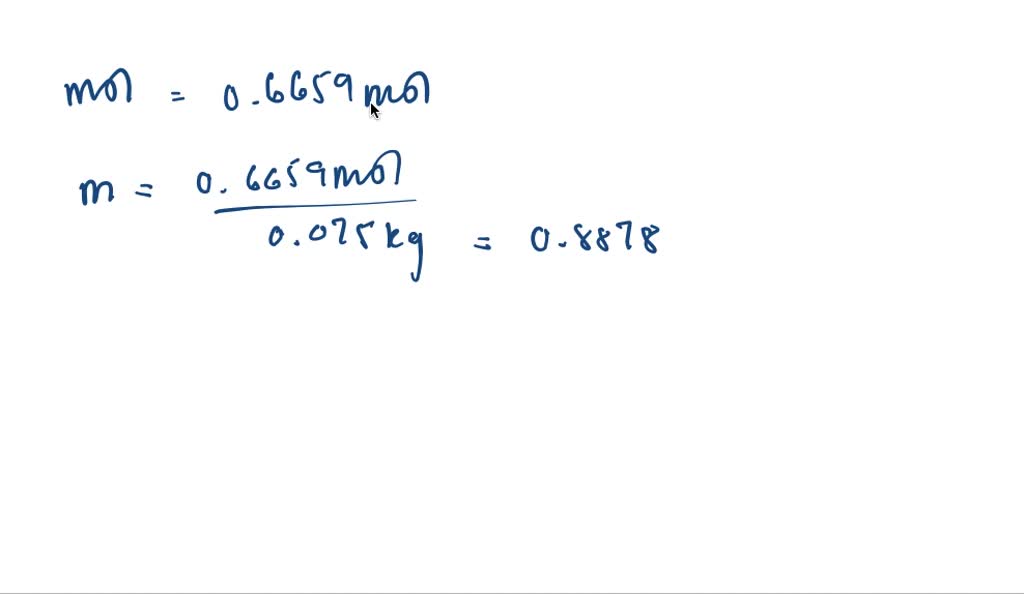 mol = 0.6659 mol
m = 0.6659 mol
0.075 kg = 0.8878